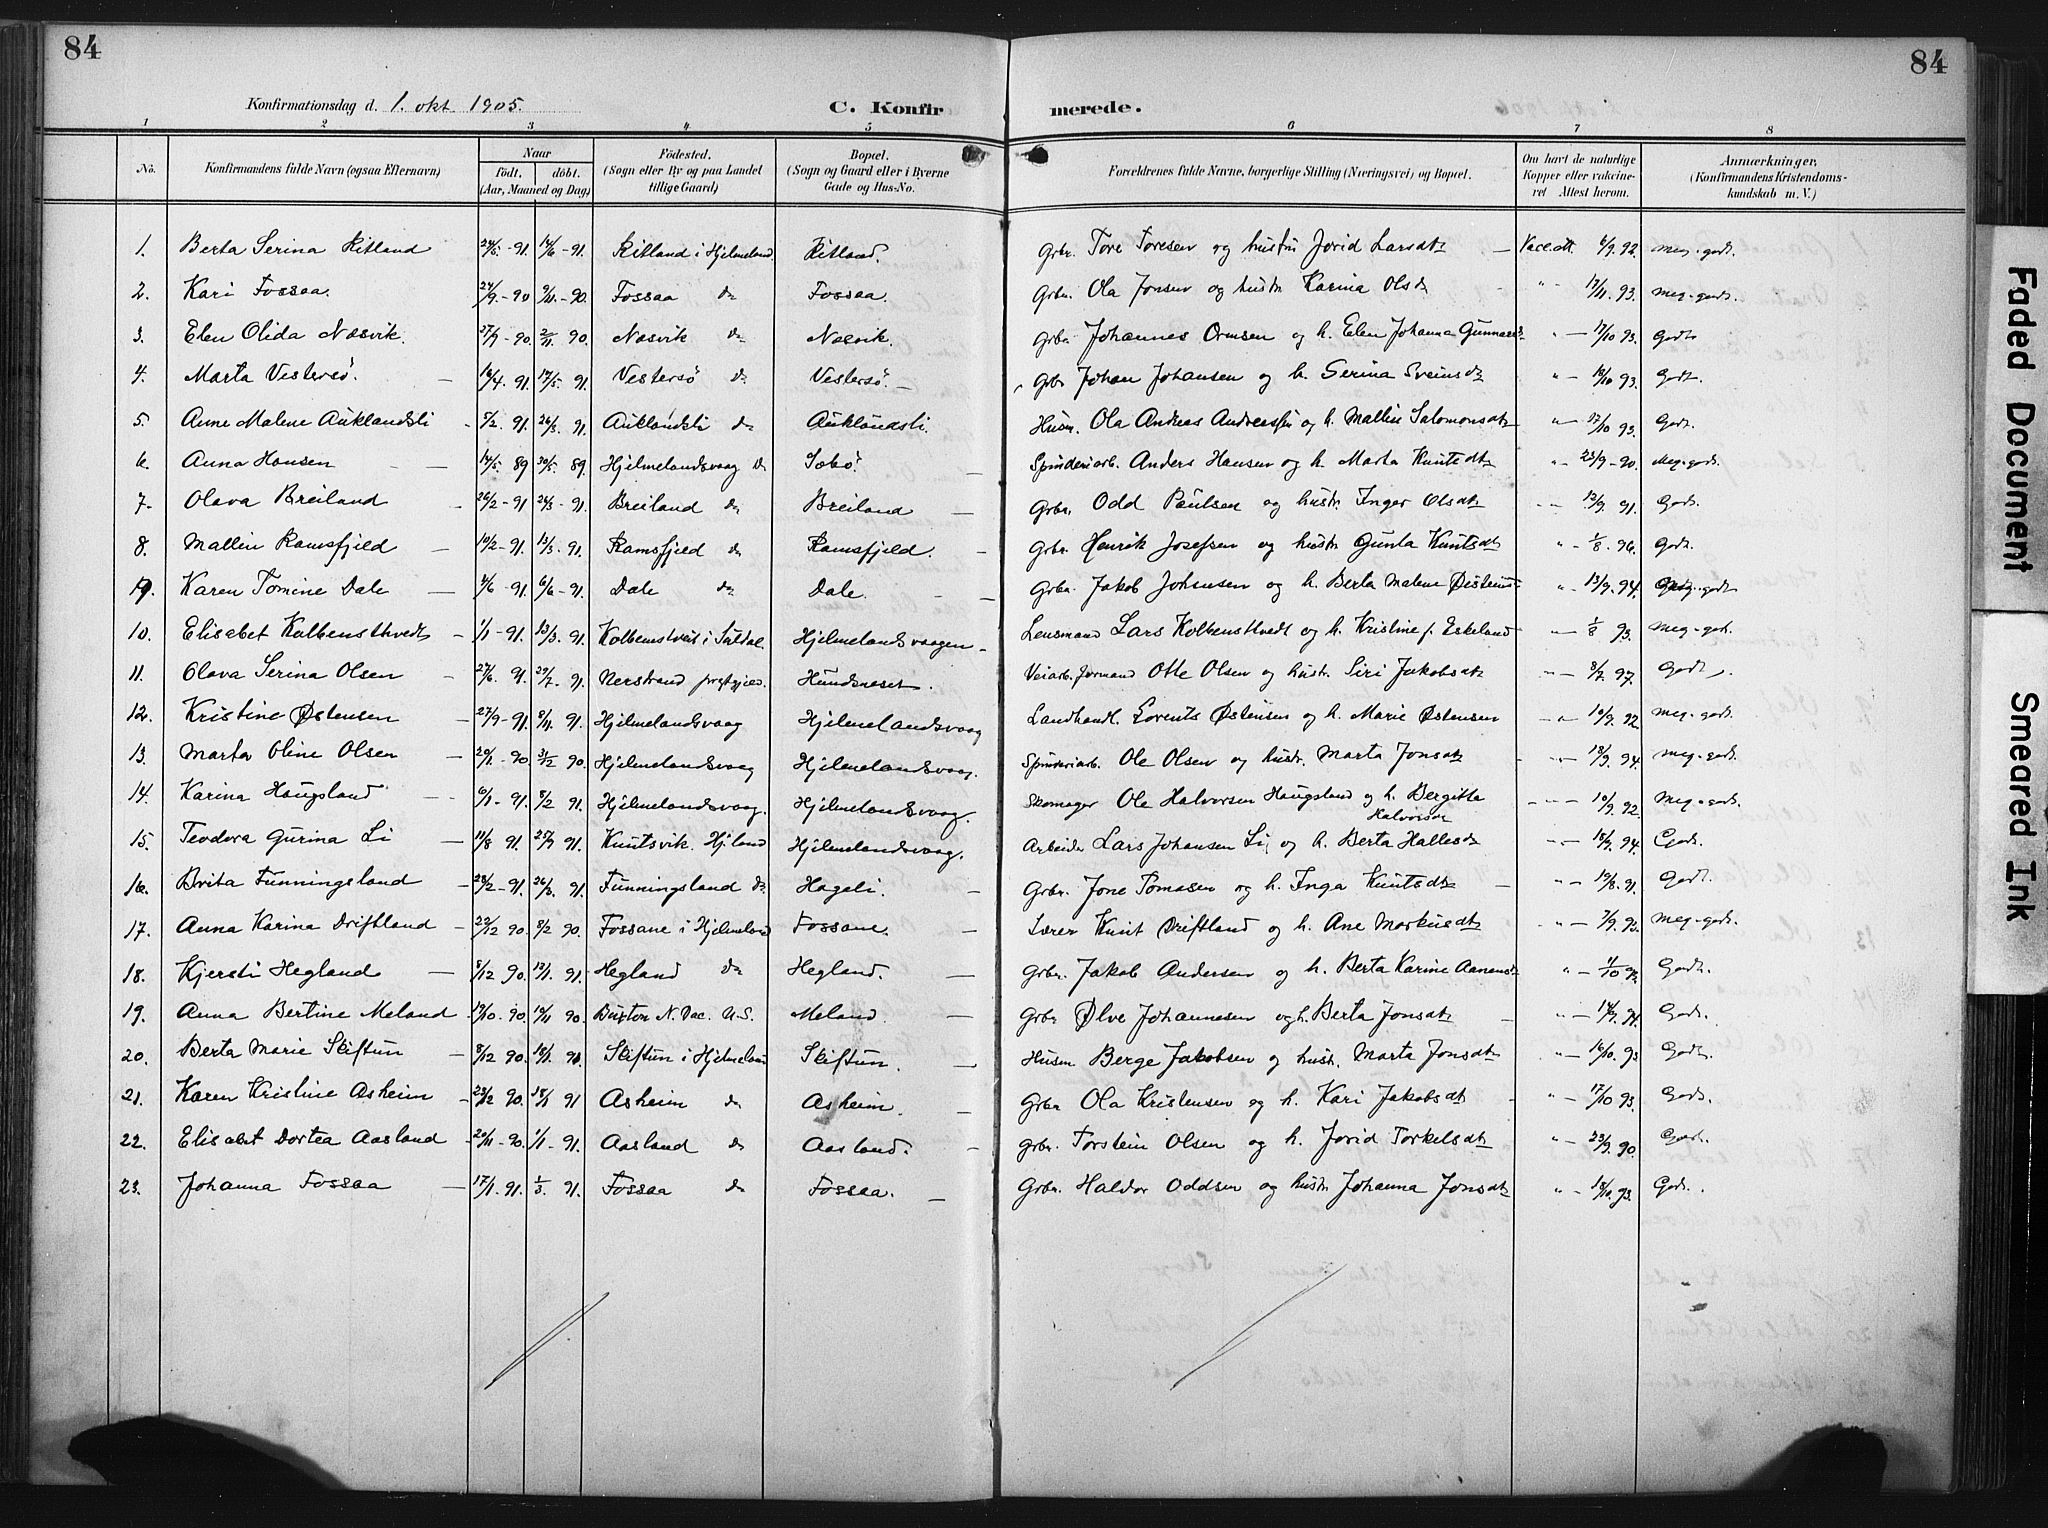 84
84
Konfirmationsdag d. 1. okt 1905.
C. Konfirmerede.
1 2 3 4 5 6 7 8
No. Konfirmandens fulde Navn (ogsaa Efternavn) Naar født. døbt. (Aar, Maaned og Dag) Fødested. (Sogn eller By og paa Landet tillige Gaard) Bopæl. (Sogn og Gaard eller i Byerne Gade og Hus-No. Forældrenes fulde Navne, borgerlige Stilling (Næringsvei) og Bopæl. Om havt de naturlige Kopper eller vakcineret Attest herom. Anmærkninger, (Konfirmandens Kristendomskundskab m. V.)
1. Berta Serina Ritland 24/5-91. 14/6-91. Ritland i Hjelmeland. Ritland. Grbr. Tore Toresen og hustru Jorid Larsdtr — Vacc.att. 6/9.92. Meg.godt.
2. Kari Fossaa. 24/9-90 9/11-90. Fossaa do Fossaa. Grbr. Ola Jonsen og hustr. Karina Olsdr " 17/11.93. Meg-godt.
3. Elen Olida Næsvik. 27/9-90. 2/11 90. Næsvik do Næsvik. Grbr. Johannes Ormsen og h. Elen Johanna Gunnarsd. " — 17/10 93. Godt
4. Marta Vestersø. — 16/4. 91. 17/5 91. Vestersø do Vestersø. — Grbr Johan Johansen og h. Serina Sveinsdtr " — 18/10 93. Godt.
5. Anne Malene Auklandsli 5/2. 91. 26/3. 91. Auklandsli do Auklandsli. Husm. Ola Andreas Andreassen og h. Mallin Salomonsdtr " — 17/10 93. Godt.
6. Anna Hansen — 14/5. 89 30/5. 89. Hjelmelandsvaag do Søbø. — Spinderiarb. Anders Hansen og h. Marta Knutsdtr " — 23/9-90. Meg-godt.
7. Olava Breiland 26/2-91 24/3-91. Breiland do Breiland — Grbr. Odd Paulsen og hustr. Inger Olsdtr " — 12/9. 91. Godt.
8. Mallin Ramsfjeld — 10/2-91. 13/3. 91. Ramsfjeld do Ramsfjeld. — Grbr Henrik Josefsen og hustr Gunla Knutsdt " — 1/8. 96. Godt.
9. Karen Tomine Dale — 4/6-91. 6/6-91. Dale do Dale. Grbr. Jakob Johnsen og h. Berta Malene Østeins " — 13/9.94. Meg-godt
10. Elisabet Kolbensthvedt — 1/1-91. 13/3. 91. Kolbenstveit i Suldal. Hjelmelandsvaagen — Lensmand Lars Kolbensthvedt og h. Kristine f. Eskeland " — 1/8 93. Meg-got.
11. Olava Serina Olsen — 27/6. 91. 29/7. 91. Nerstrand prestgjeld. Hundsneset. Veiarb.formand Otte Olsen og hustr. Siri Jakobsdtr " — 8/7. 97. Godt
12. Kristine Østensen — 27/9-91. 8/11. 91. Hjelmelandsvaag Hjelmelandsvaag Landhandl. Lorents Østensen og h. Marie Østensen " — 10/9. 92. Meg-godt.
13. Marta Oline Olsen — 20/11-90. 31/12 90. Hjelmelandsvaag Hjelmelandsvaag. Spinderiarb. Ole Olsen og hustr. Marta Jonsdtr " — 18/9. 94. Meg-godt.
14. Karina Haugsland — 6/1-91. 8/2 91. Hjelmelandsvaag. Hjelmelandsvaag. Skomager Ole Halvorsen Haugsland og h. Bergitta Halvorsdr " — 10/9. 92. Meg-godt.
15. Teodora Gurina Li — 11/8 91. 25/9 91. Knutsvik. Hjeland Hjelmelandsvaag. Arbeider Lars Johansen Li, og h. Berta Hallesdr " — 18/9. 94. Godt.
16. Brita Funningsland — 28/2-91. 26/3. 91. Funningsland do. Hageli. — Grbr. Jone Tomasen og h. Inga Knutsdtr — " — 19/8. 91. Godt.
17. Anna Karina Driftland — 22/12 90. 8/2 90. Fossane i Hjelmeland Fossane. — Lærer Knut Driftland og h. Ane Markusdtr " — 7/9. 93. Meg-godt.
18. Kjersti Hegland — 8/12 90. 12/1. 91. Hegland do Hegland. — Grbr. Jakob Andersen og h. Berta Karine Aanensdtr " — 11/10 92 Godt.
19. Anna Bertine Meland — 19/10. 90. 19/11 90. Buxton N. Dac. U.S. Meland. — Grbr Ølve Johannesen og h. Berta Jonsdtr — " — 14/9. 91. Godt.
20. Berta Marie Skiftun — 8/12 90. 18/1. 91. Skiftun i Hjelmeland Skiftun. — Husm Berge Jakobsen og hustr. Marta Jonsdtr " — 16/10. 93 Godt.
21. Karen Kristine Asheim — 23/12 90. 18/1 91 Asheim do Asheim. — Grbr Ola Kristensen og h. Kari Jakobsdt — " — 17/10 93. Godt.
22. Elisabet Dortea Aasland — 20/11-90. 1/1-91. Aasland do Aasland. — Grbr. Torstein Olsen og h. Jorid Torkelsdtr " — 23/9.90. Godt.
23. Johanna Fossaa — 17/1. 91. 1/3. 91. Fossaa do Fossaa. — Grbr. Haldor Oddsen og hustr Johanna Jonsdtr " — 18/10. 93. Godt.
Faded Document
Smeared Ink